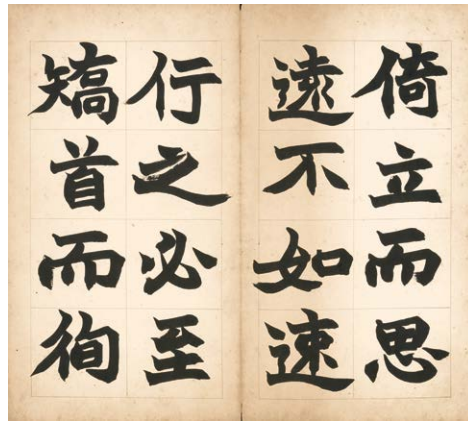 倚立而思
遠不如速
行之必至
矯首而徇